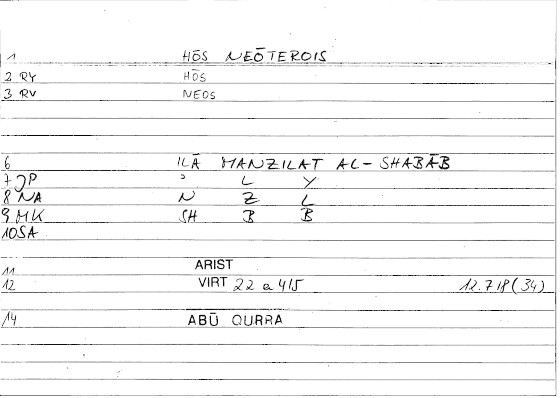 1 HŌS NEŌTEROIS
2 RY HŌS
3 RV NEOS
6 ILĀ MANZILAT AL-SHABĀB
7 JP ʾ L Y
8 NA N Z L
9 MK SH B B
10 SA
11 ARIST
12 VIRT 22 a 4/5 12.718 (34)
14 ABŪ QURRA